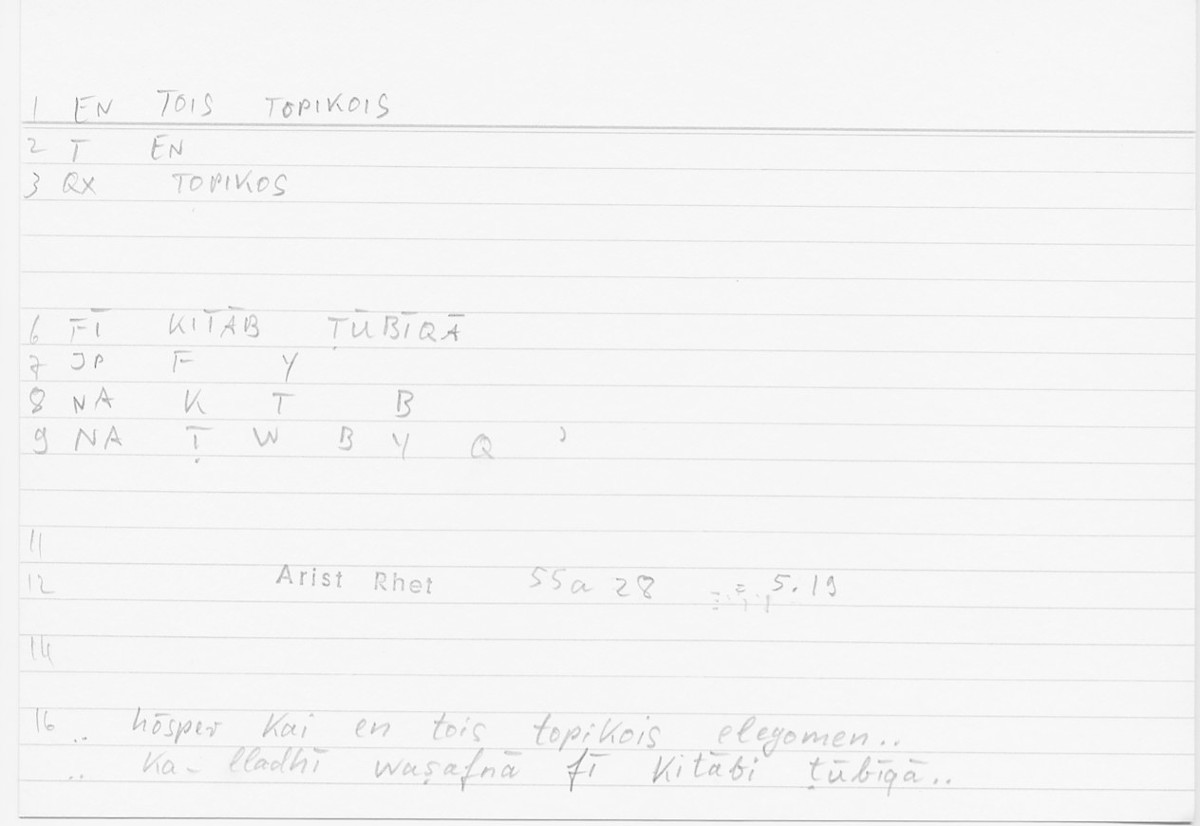 1 EN TOIS TOPIKOIS
2 T EN
3 QX TOPIKOS
6 FĪ KITĀB ṬŪBĪQĀ
7 JP F Y
8 NA K T B
9 NA Ṭ W B Y Q ʾ
11
12 Arist Rhet 55a 28 = 5.19
14
16 .. hōsper kai en tois topikois elegomen..
.. ka-lladhī waṣafnā fī kitābi ṭūbīqā..